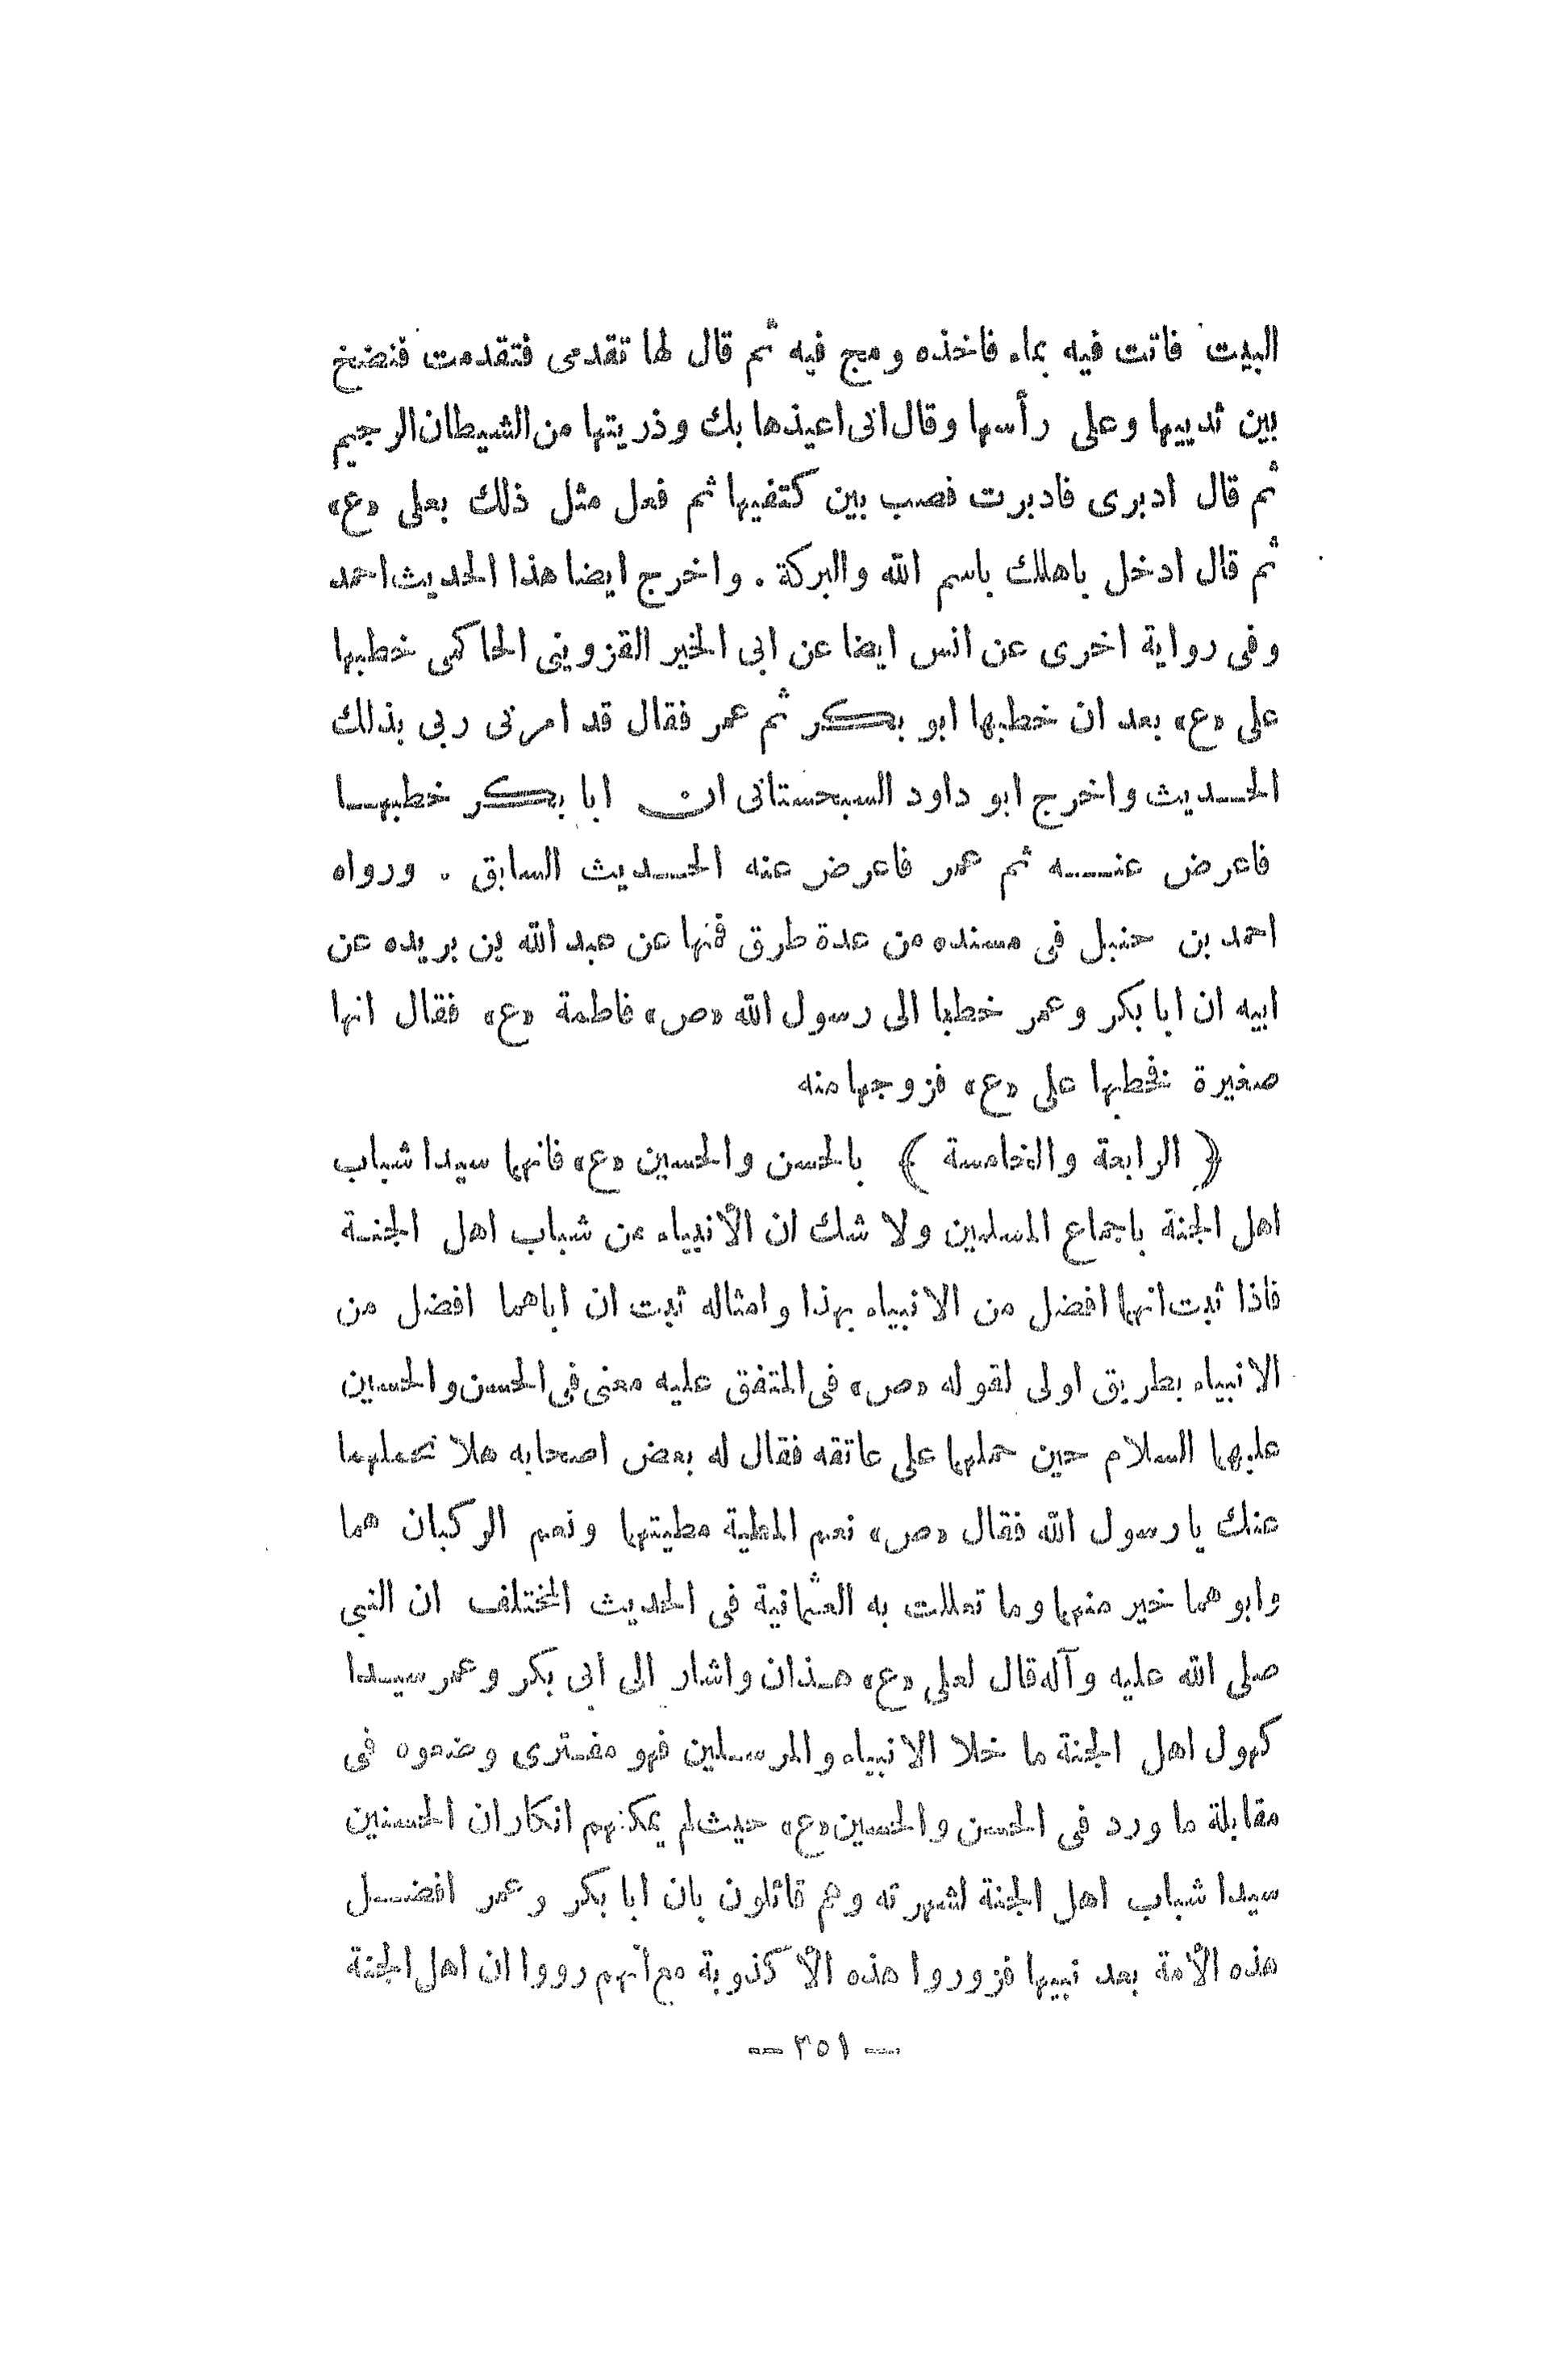 البيت فاتت فيه بماء فاخذه ومج فيه ثم قال لها تقدمى فتقدمت فنضخ
بين ثدييها وعلى رأسها وقال انى اعيذها بك وذريتها من الشيطان الرجيم
ثم قال ادبرى فادبرت فصب بين كتفيها ثم فعل مثل ذلك بعلى «ع»
ثم قال ادخل باهلك باسم الله والبركة . واخرج ايضا هذا الحديث احمد
وفى رواية اخرى عن انس ايضا عن ابى الخير القزوينى الحاكمى خطبها
على «ع» بعد ان خطبها ابو بكر ثم عمر فقال قد امرنى ربى بذلك
الحديث واخرج ابو داود السبحستانى ان ابا بكر خطبها
فاعرض عنه ثم عمر فاعرض عنه الحديث السابق . ورواه
احمد بن حنبل فى مسنده من عدة طرق فمنها عن عبد الله بن بريده عن
ابيه ان ابا بكر وعمر خطبا الى رسول الله «ص» فاطمة «ع» فقال انها
صغيرة فخطبها على «ع» فزوجها منه
( الرابعة والخامسة ) بالحسن والحسين «ع» فانهما سيدا شباب
اهل الجنة باجماع المسلمين ولا شك ان الأنبياء من شباب اهل الجنة
فاذا ثبت انهما افضل من الانبياء بهذا وامثاله ثبت ان اباهما افضل من
الانبياء بطريق اولى لقوله «ص» فى المتفق عليه معنى فى الحسن والحسين
عليهما السلام حين حملهما على عاتقه فقال له بعض اصحابه هلا نحملهما
عنك يا رسول الله فقال «ص» نعم المطية مطيتهما ونعم الركبان هما
وابوهما خير منهما وما تعللت به العثمانية فى الحديث المختلف ان النبى
صلى الله عليه وآله قال لعلى «ع» هذان واشار الى أبى بكر وعمر سيدا
كهول اهل الجنة ما خلا الانبياء والمرسلين فهو مفترى وضعوه فى
مقابلة ما ورد فى الحسن والحسين «ع» حيث لم يمكنهم انكار ان الحسنين
سيدا شباب اهل الجنة لشهرته وهم قائلون بان ابا بكر وعمر افضل
هذه الأمة بعد نبيها فزوروا هذه الأكذوبة مع أنهم رووا ان اهل الجنة
— ٣٥١ —